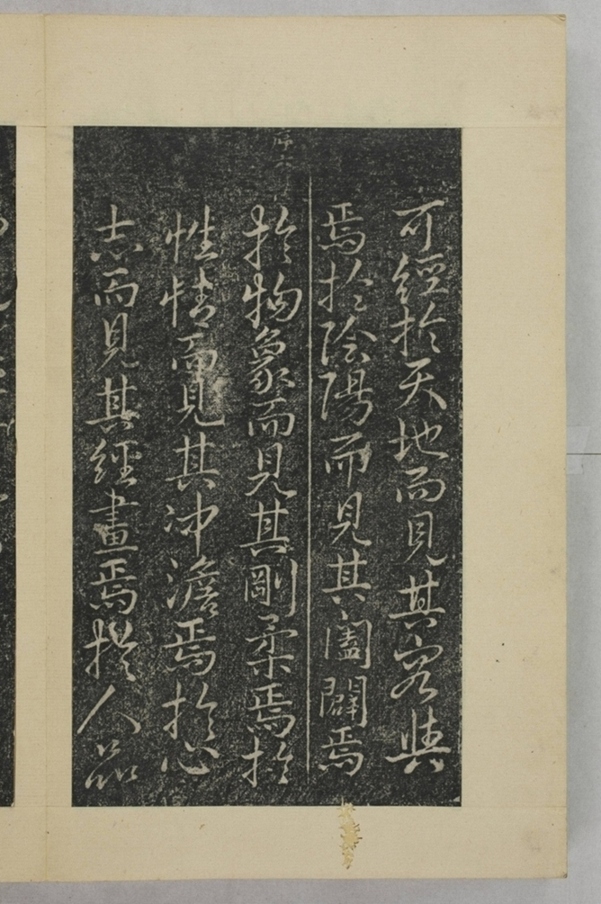 可經於天地而見其寥㒷
焉於陰陽而見其闔闢焉
於物象而見其剛柔焉於
性情而見其冲澹焉於心
志而見其經畫焉於人品